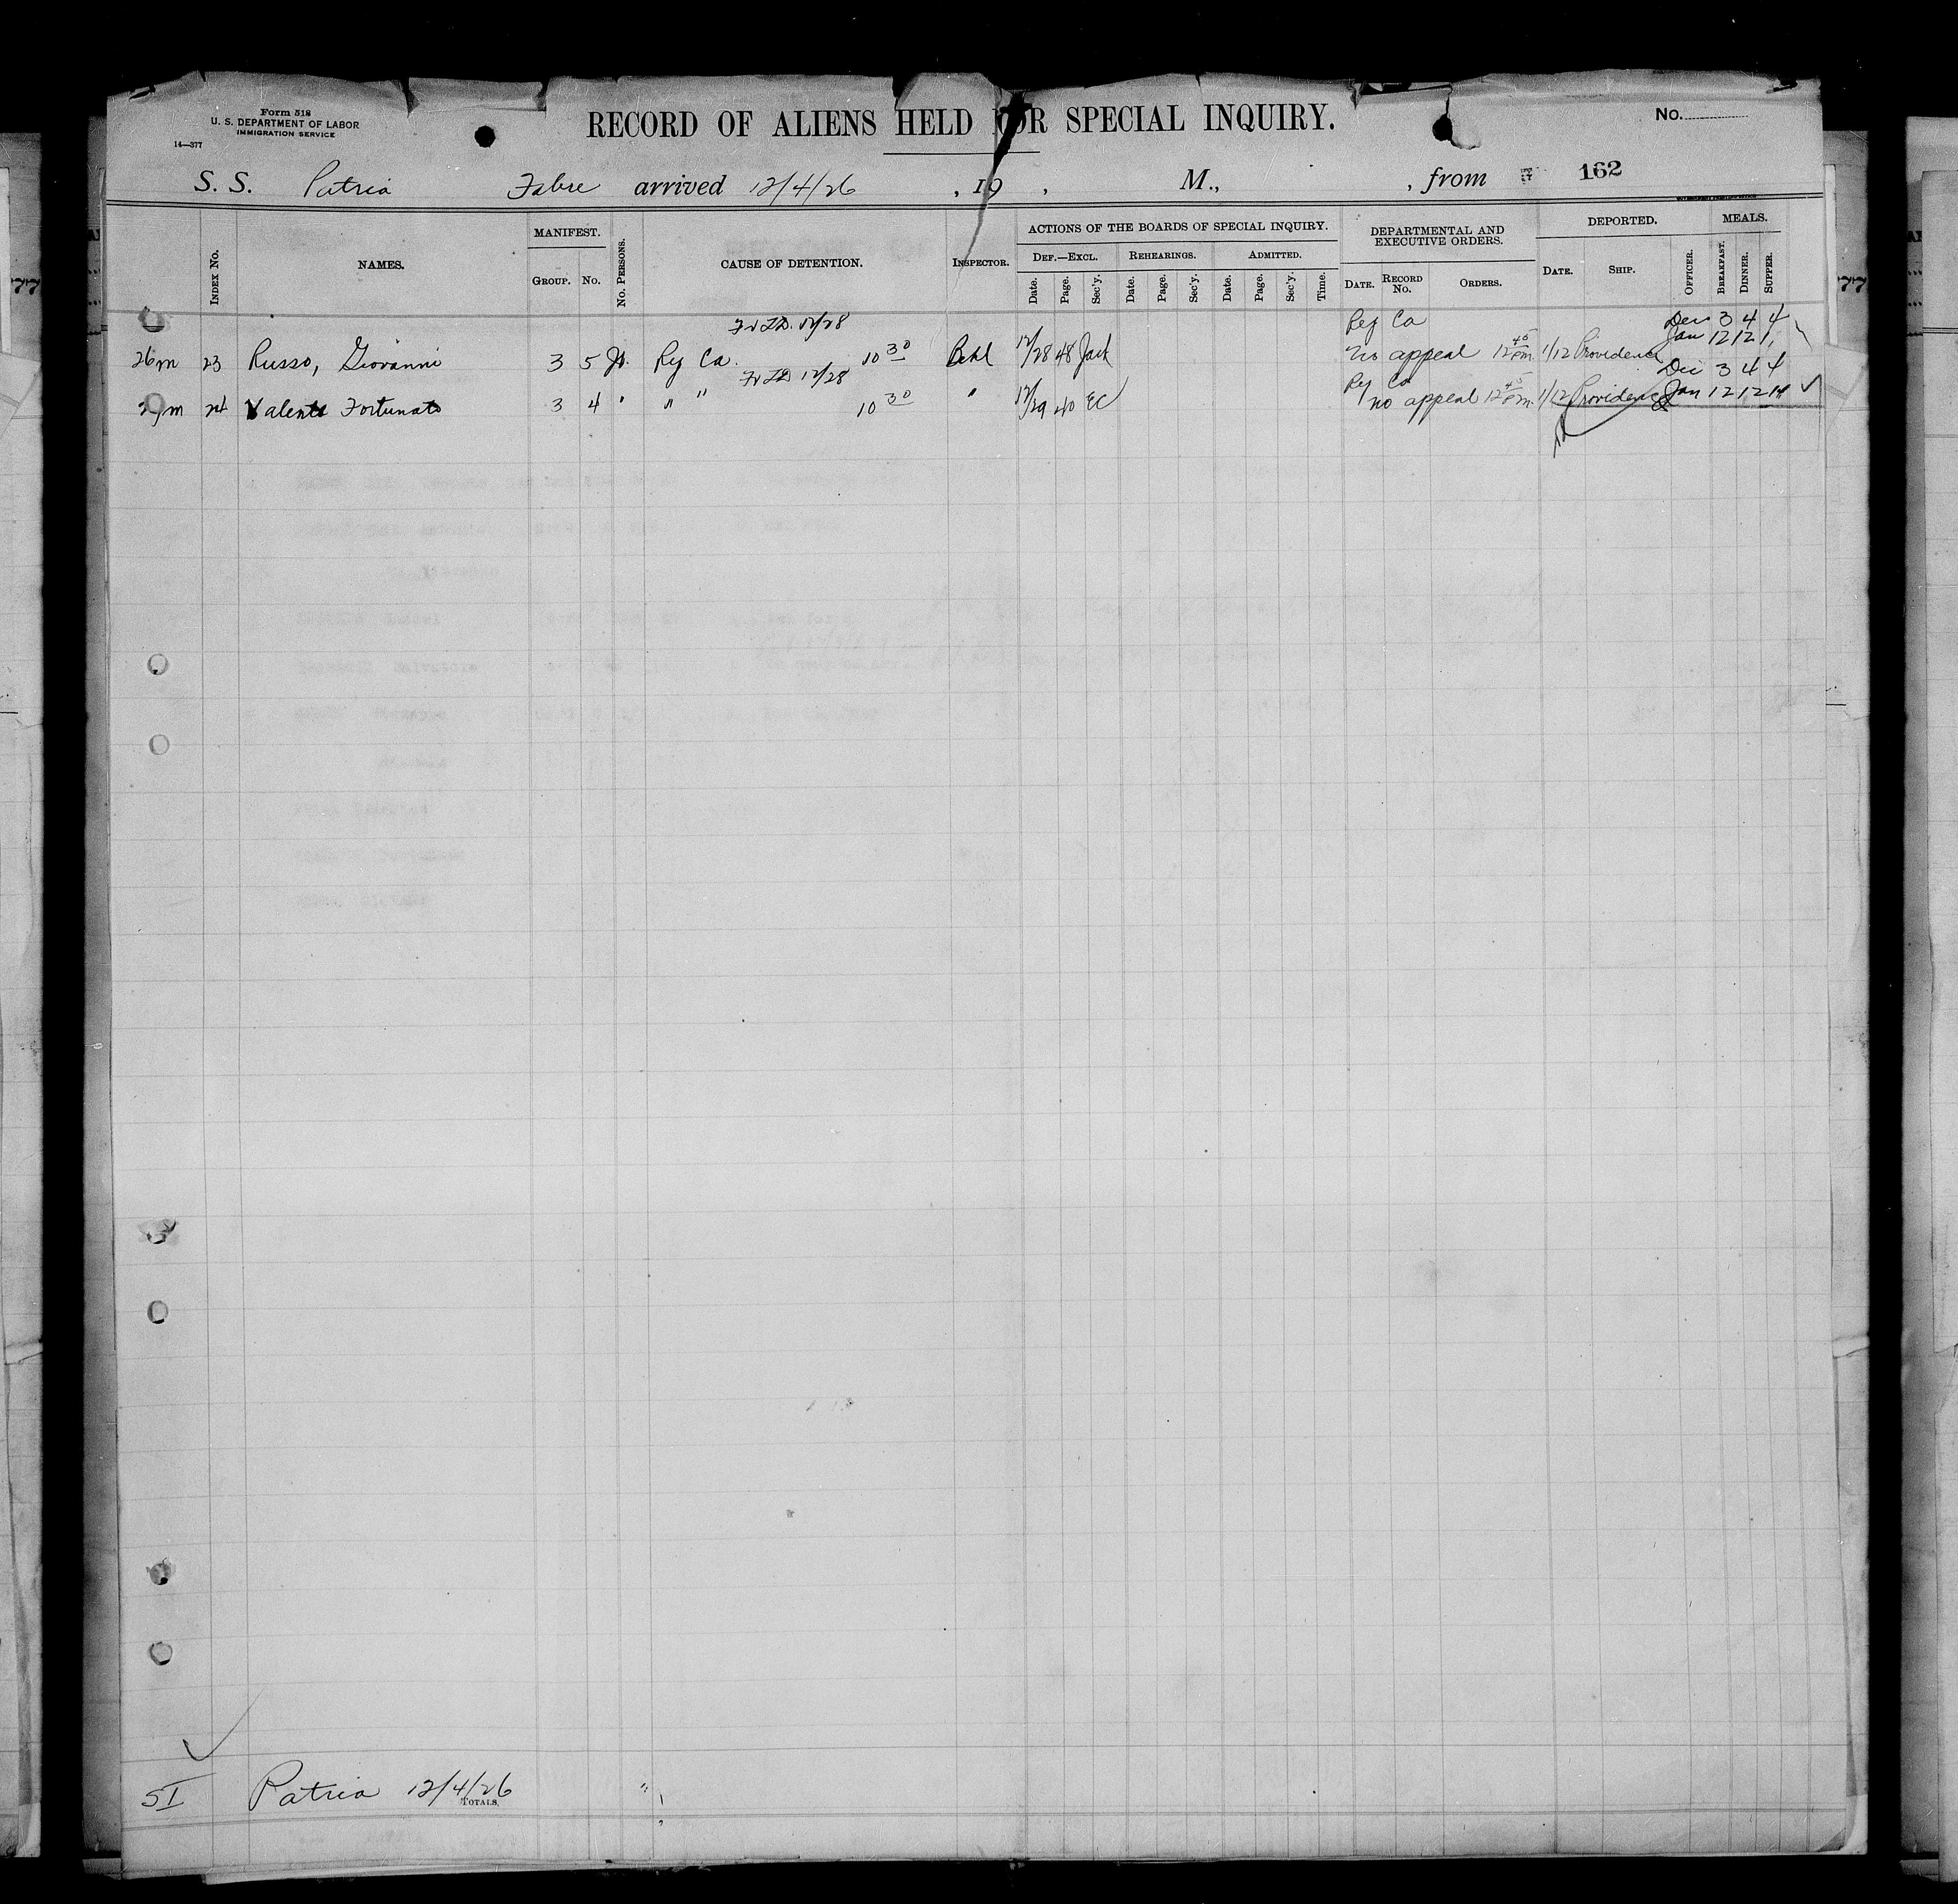 Form 518
U. S. DEPARTMENT OF LABOR
IMMIGRATION SERVICE
14—377
RECORD OF ALIENS HELD FOR SPECIAL INQUIRY.
No.
S. S. Patria Fabre arrived 12/4/26 , 19 , M., , from 162
INDEX No.
NAMES.
MANIFEST.
GROUP. No.
No. PERSONS.
CAUSE OF DETENTION.
INSPECTOR.
ACTIONS OF THE BOARDS OF SPECIAL INQUIRY.
DEF.—EXCL. REHEARINGS. ADMITTED.
Date. Page. Sec'y. Date. Page. Sec'y. Date. Page. Sec'y. Time.
DEPARTMENTAL AND
EXECUTIVE ORDERS.
DATE. RECORD No. ORDERS.
DEPORTED.
DATE. SHIP. OFFICER.
MEALS.
BREAKFAST. DINNER. SUPPER.
12/28 Rej Ca Dec 3 4 4
26m 23 Russo, Giovanni 3 5 Rej Ca. 10 30 12/28 48 no appeal 12 45 pm. 1/12 Providence Jan 12 12
12/28 Rej Ca Dec 3 4 4
m 24 Valente Fortunato 3 4 " " " 10 30 " 12/29 40 EC no appeal 12 45 pm. 1/12 Providence Jan 12 12 11
SI Patria 12/4/26
TOTALS.